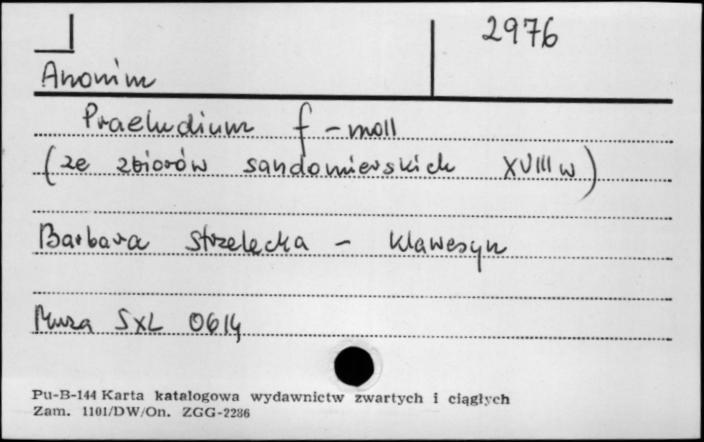 2976
Anonim
Praeludium f-moll
(ze zbiorów sandomierskich XVIII w)
Barbara Strzelecka - klawesyn
Muza SXL 0614
Pu-B-144 Karta katalogowa wydawnictw zwartych i ciągłych
Zam. 1101/DW/On. ZGG-2286